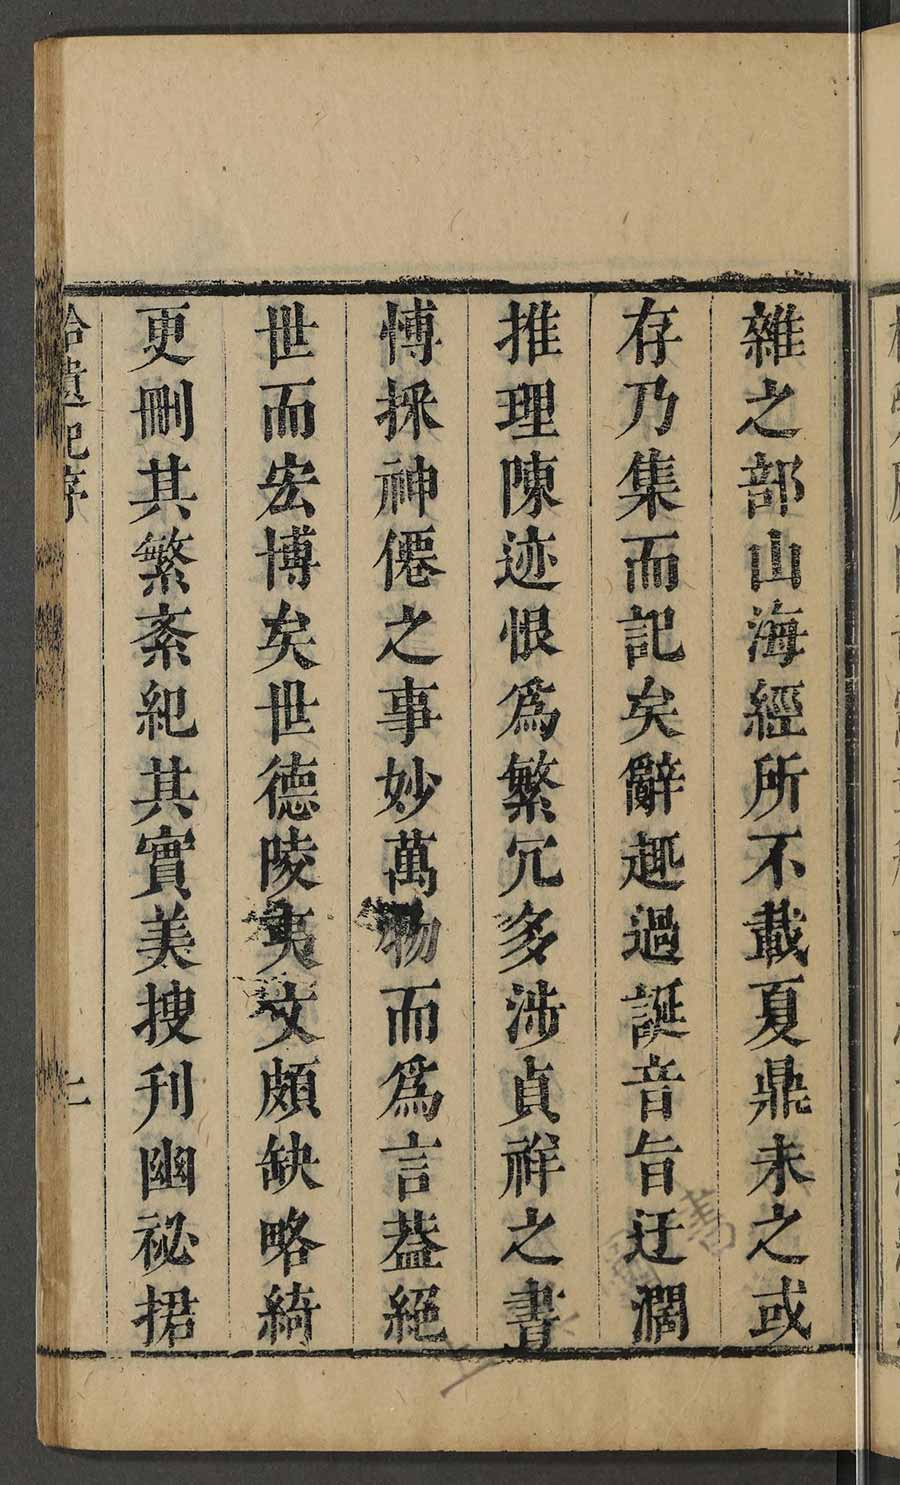 雜之部山海經所不載夏鼎未之或
存乃集而記矣辭趣過誕音旨迂濶
推理陳迹恨爲繁冗多涉貞祥之書
愽採神僊之事妙萬物而爲言葢絕
世而宏博矣世德陵夷文頗缺略綺
更刪其繁紊紀其實美搜刋幽祕捃
拾遺記序